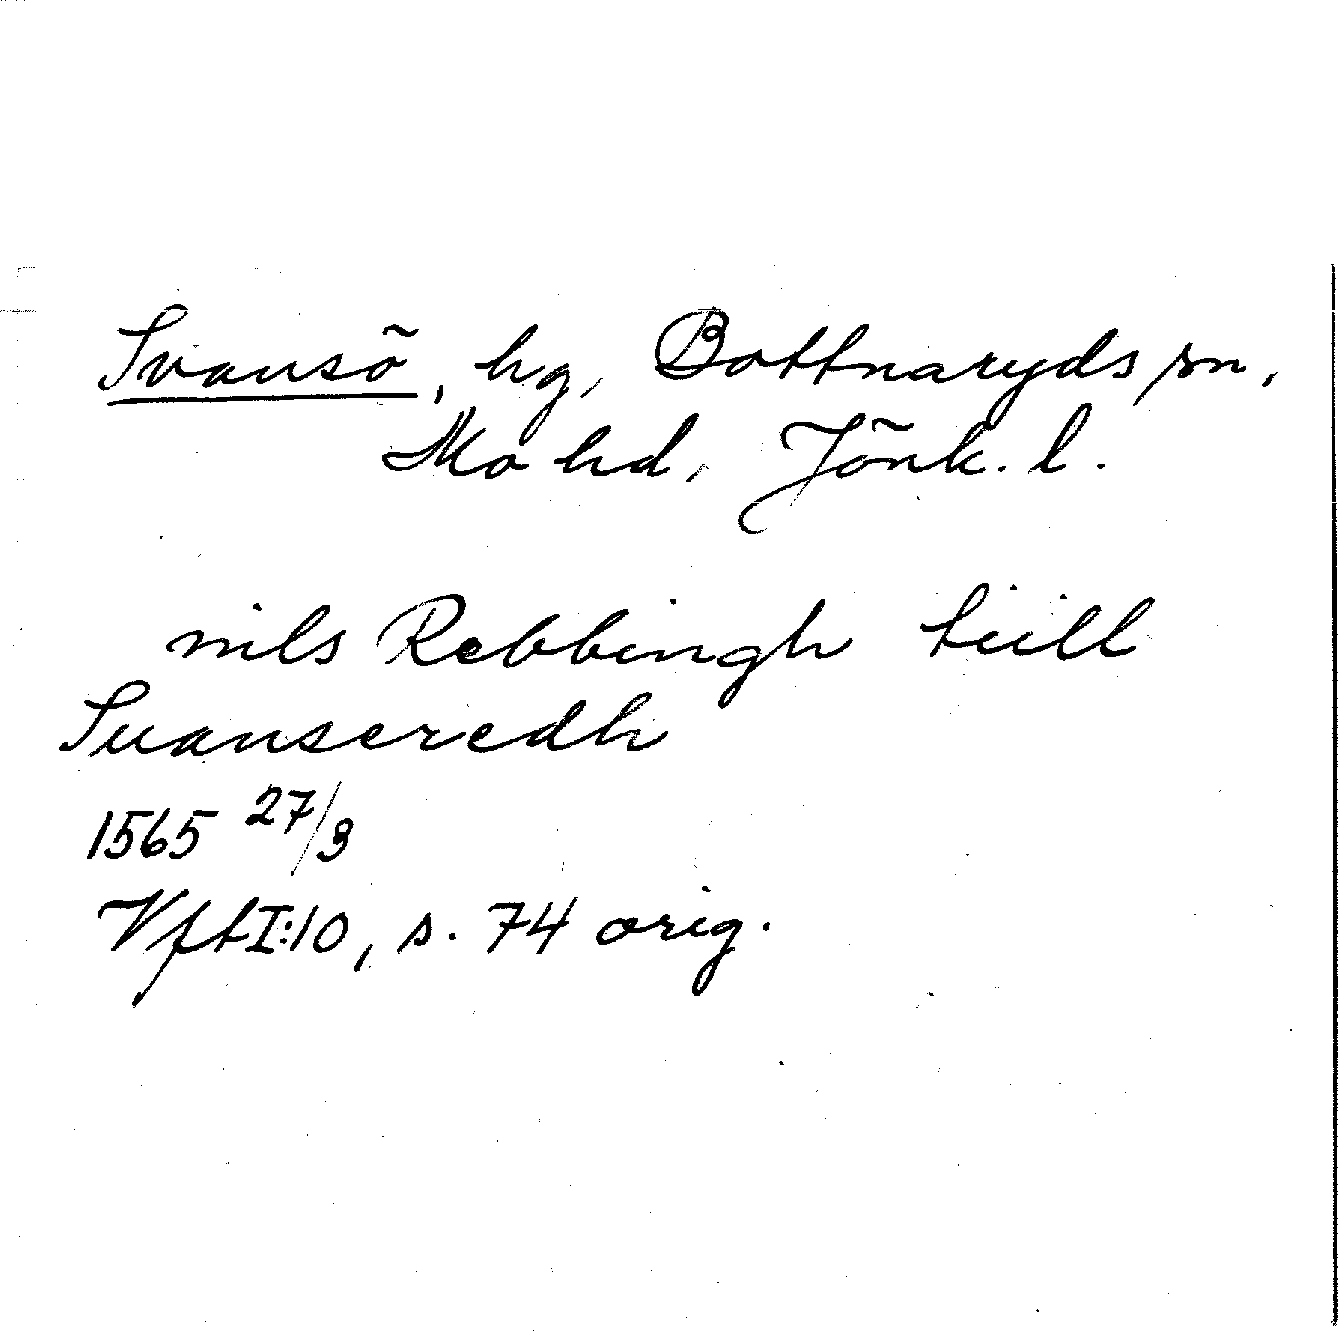 Svansö, hg, Bottnaryds sn,
Mo hd, Jönk. l.
nils Rebbingh tiill
Suanseredh
1565 27/3
Vftl I:10, s. 74 orig.